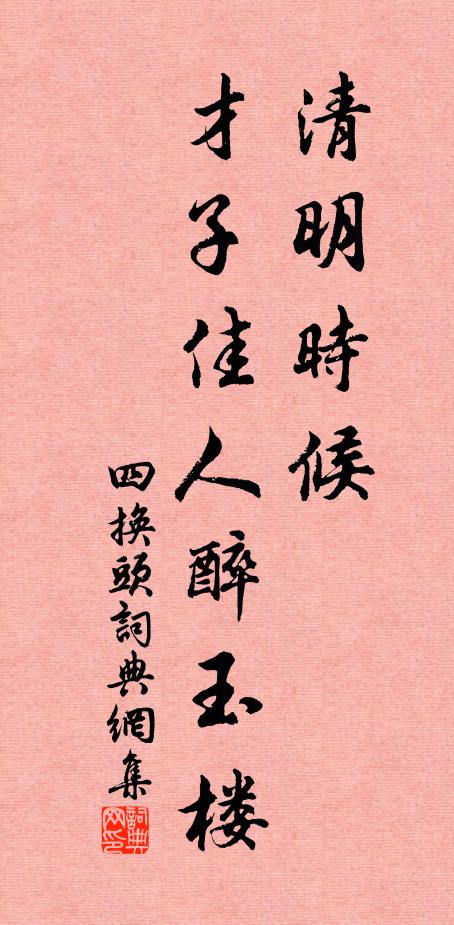 清明時候
才子佳人醉玉楼
四換頭詞典網集
詞典网印